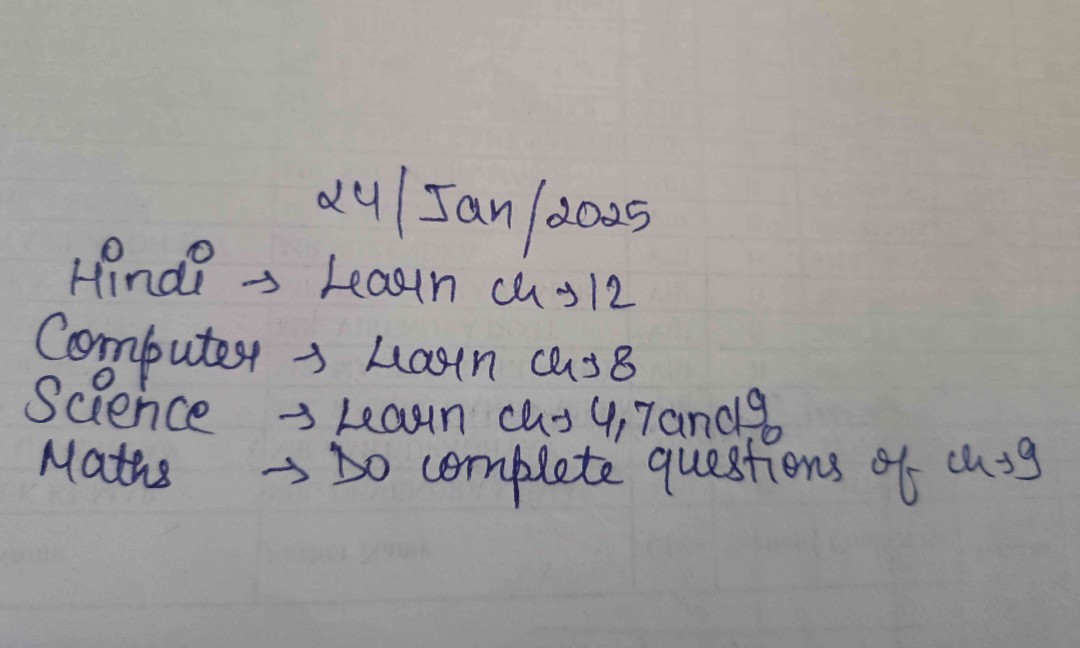 24/Jan/2025
Hindi → Learn ch → 12
Computer → Learn ch → 8
Science → Learn ch → 4, 7 and 9.
Maths → Do complete questions of ch → 9